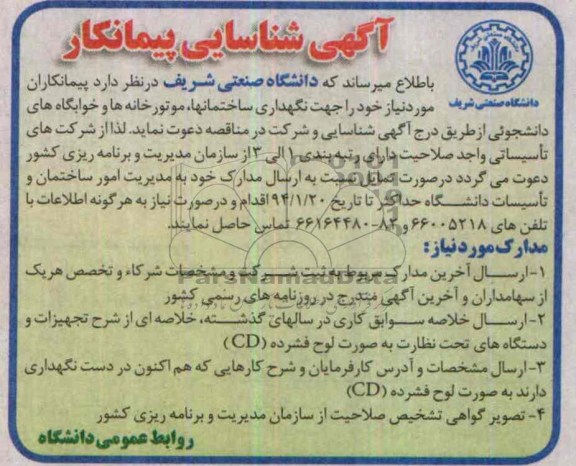 آگهی شناسایی پیمانکار
دانشگاه صنعتی شریف
باطلاع میرساند که دانشگاه صنعتی شریف درنظر دارد پیمانکاران
موردنیاز خود را جهت نگهداری ساختمانها، موتورخانه ها و خوابگاه های
دانشجوئی از طریق درج آگهی شناسایی و شرکت در مناقصه دعوت نماید. لذا از شرکت های
تأسیساتی واجد صلاحیت دارای رتبه بندی ۱ الی ۳ از سازمان مدیریت و برنامه ریزی کشور
دعوت می گردد درصورت تمایل نسبت به ارسال مدارک خود به مدیریت امور ساختمان و
تأسیسات دانشگاه حداکثر تا تاریخ ۹۴/۱/۲۰ اقدام و درصورت نیاز به هرگونه اطلاعات با
تلفن های ۶۶۰۰۵۲۱۸ و ۸۲-۶۶۱۶۴۴۸۰ تماس حاصل نمایند.
مدارک موردنیاز:
۱-ارسال آخرین مدارک مربوط به ثبت شرکت و مشخصات شرکاء و تخصص هریک
از سهامداران و آخرین آگهی مندرج در روزنامه های رسمی کشور
۲-ارسال خلاصه سوابق کاری در سالهای گذشته، خلاصه ای از شرح تجهیزات و
دستگاه های تحت نظارت به صورت لوح فشرده (CD)
۳-ارسال مشخصات و آدرس کارفرمایان و شرح کارهایی که هم اکنون در دست نگهداری
دارند به صورت لوح فشرده (CD)
۴- تصویر گواهی تشخیص صلاحیت از سازمان مدیریت و برنامه ریزی کشور
روابط عمومی دانشگاه
ParsNamadData